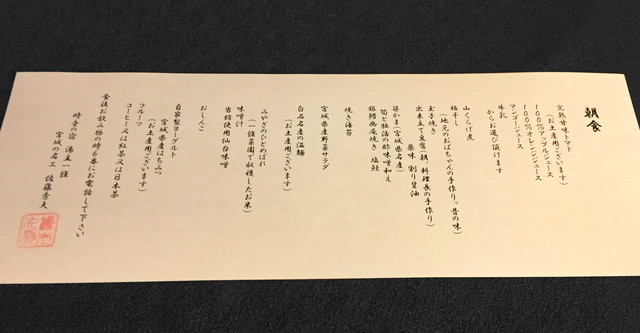 朝食
完熟甘味トマト
(お土産用ございます)
100%アップルジュース
100%オレンジジュース
マンゴージュース
牛乳
からお選び頂けます
山くらげ煮
梅干し(地元のおばちゃんの手作り。昔の味)
玉子焼き
出来立て豆腐(朝、料理長の手作り)
薬味 割り醤油
笹かま(宮城県名産)
筍と独活の酢味噌和え
銀鱈幽庵焼き 塩鮭
焼き海苔
宮城県産野菜サラダ
白石名産の温麺
(お土産用ございます)
みやぎのひとめぼれ
(一條菜園で収穫したお米)
味噌汁
当館使用仙台味噌
おしんこ
自家製ヨーグルト
宮城県産はちみつ
(お土産用ございます)
フルーツ
コーヒー又は紅茶又は日本茶
食後お飲み物の時6番にお電話して下さい
時音の宿 湯主一條
宮城の名工 佐藤秀夫